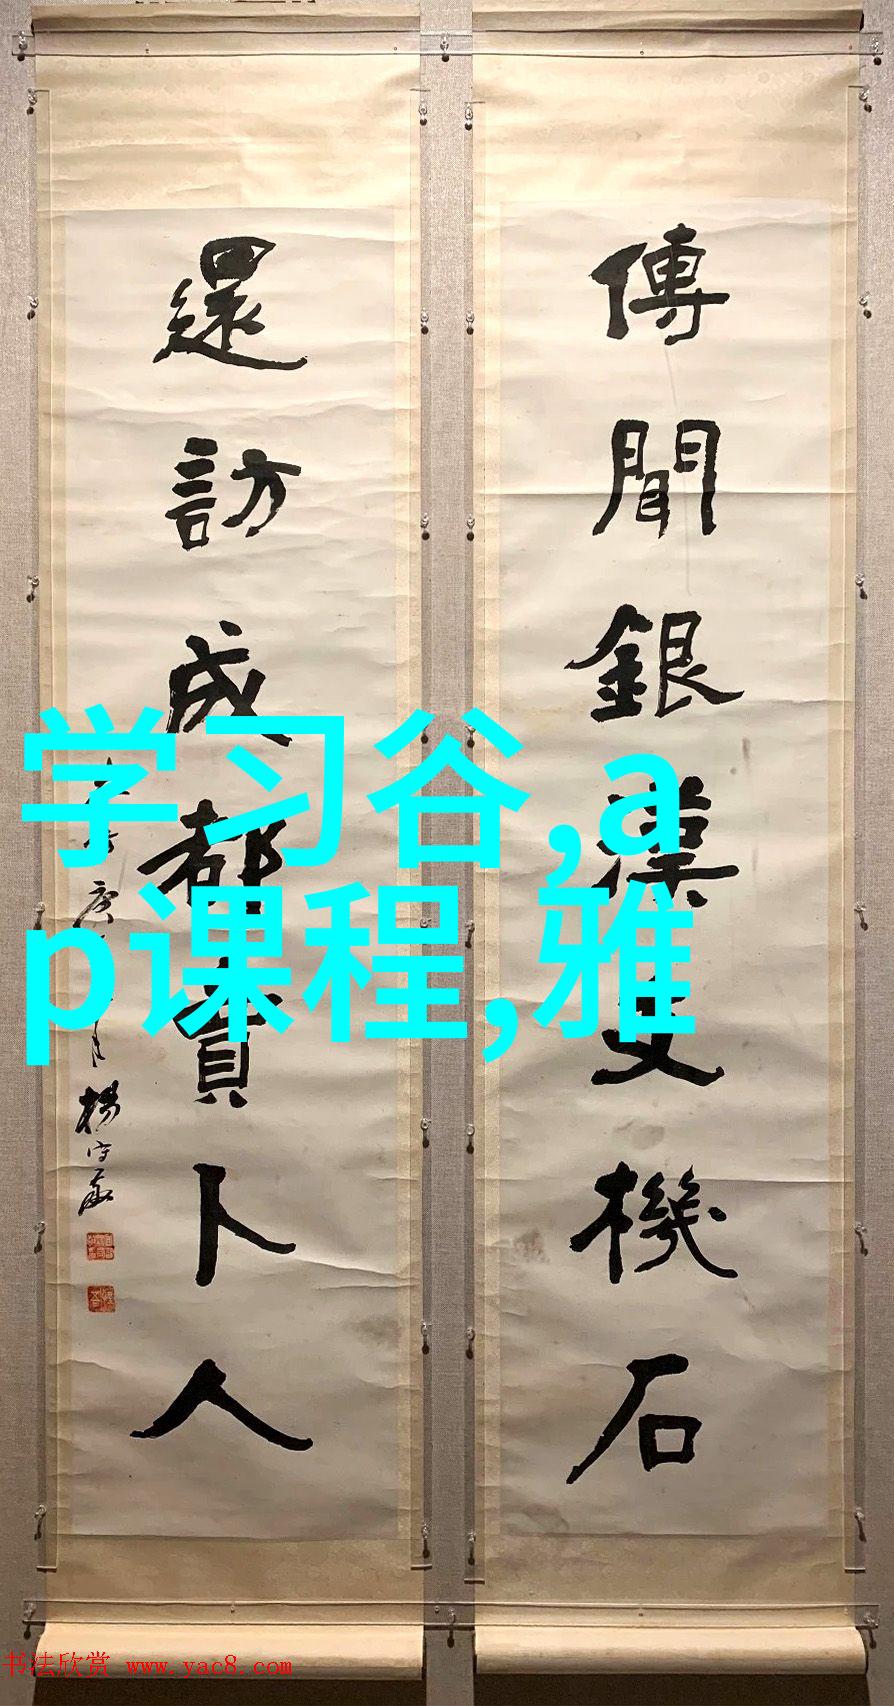 傳聞銀漢支機石
還訪成都賣卜人
楊守敬
学习谷,a
p课程,雅
书法欣赏 www.yac8.com